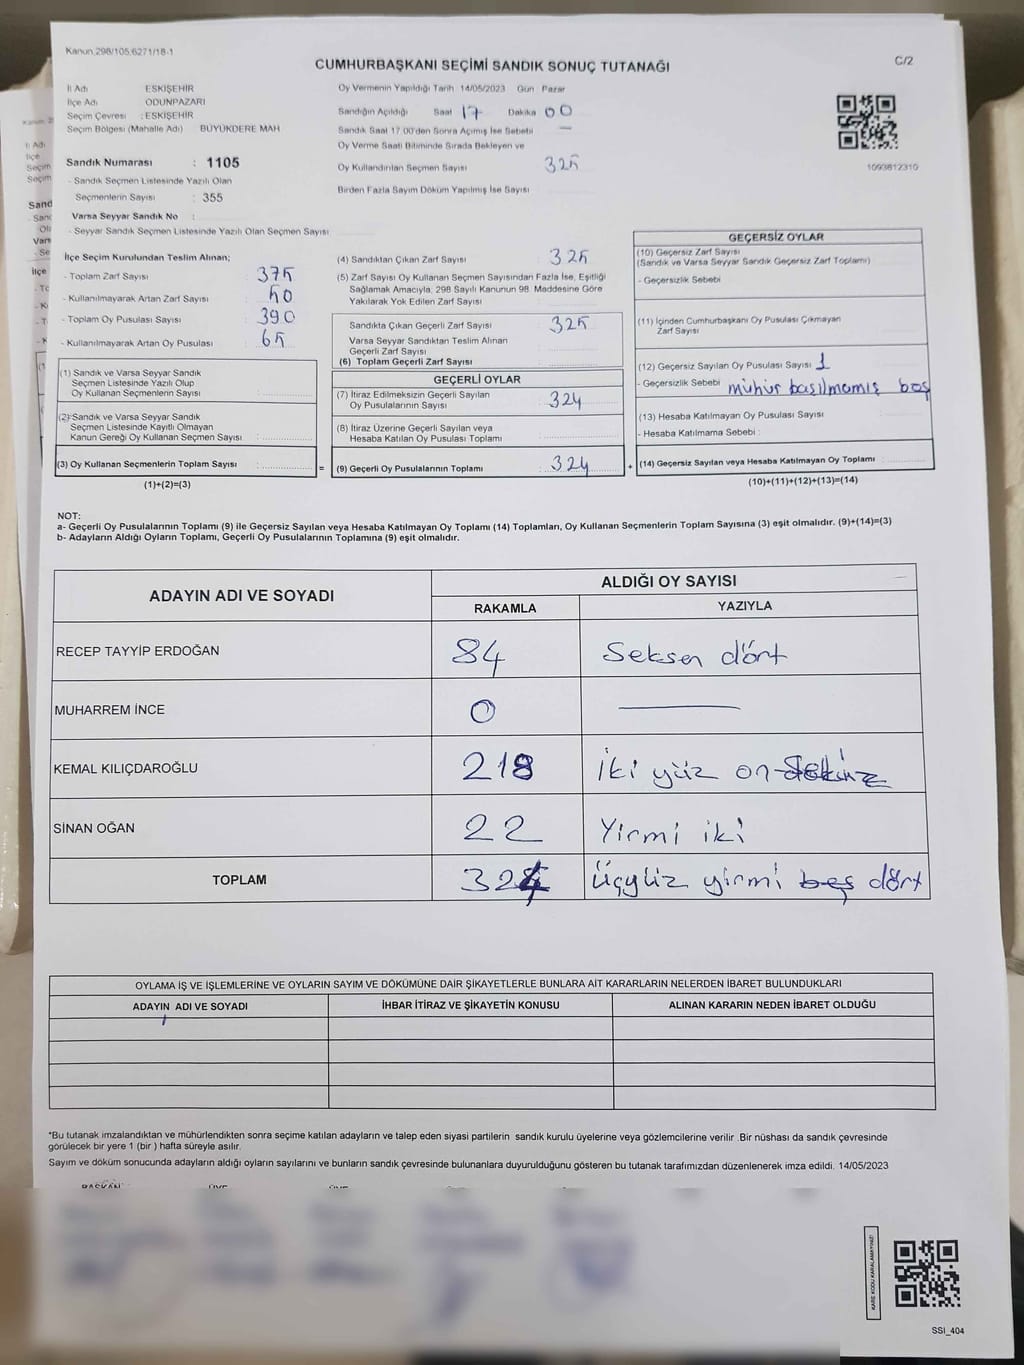 Kanun.298/105,6271/18-1
CUMHURBAŞKANI SEÇİMİ SANDIK SONUÇ TUTANAĞI
C/2
İl Adı ESKİŞEHİR
İlçe Adı ODUNPAZARI
Seçim Çevresi : ESKİŞEHİR
Seçim Bölgesi (Mahalle Adı) BÜYÜKDERE MAH
Sandık Numarası : 1105
- Sandık Seçmen Listesinde Yazılı Olan
Seçmenlerin Sayısı : 355
Varsa Seyyar Sandık No :
- Seyyar Sandık Seçmen Listesinde Yazılı Olan Seçmen Sayısı
Oy Vermenin Yapıldığı Tarih 14/05/2023 Gün Pazar
Sandığın Açıldığı Saat 17 Dakika 00
Sandık Saat 17.00'den Sonra Açımış İse Sebebi —
Oy Verme Saati Bitiminde Sırada Bekleyen ve
Oy Kullandırılan Seçmen Sayısı 325
Birden Fazla Sayım Döküm Yapılmış İse Sayısı
1093812310
İlçe Seçim Kurulundan Teslim Alınan;
- Toplam Zarf Sayısı 375
- Kullanılmayarak Artan Zarf Sayısı 50
- Toplam Oy Pusulası Sayısı 390
- Kullanılmayarak Artan Oy Pusulası 65
(1) Sandık ve Varsa Seyyar Sandık
Seçmen Listesinde Yazılı Olup
Oy Kullanan Seçmenlerin Sayısı :
(2) Sandık ve Varsa Seyyar Sandık
Seçmen Listesinde Kayıtlı Olmayan
Kanun Gereği Oy Kullanan Seçmen Sayısı :
(3) Oy Kullanan Seçmenlerin Toplam Sayısı : =
(1)+(2)=(3)
(4) Sandıktan Çıkan Zarf Sayısı 325
(5) Zarf Sayısı Oy Kullanan Seçmen Sayısından Fazla İse, Eşitliği
Sağlamak Amacıyla, 298 Sayılı Kanunun 98. Maddesine Göre
Yakılarak Yok Edilen Zarf Sayısı
Sandıkta Çıkan Geçerli Zarf Sayısı 325
Varsa Seyyar Sandıktan Teslim Alınan
Geçerli Zarf Sayısı
(6) Toplam Geçerli Zarf Sayısı
GEÇERLİ OYLAR
(7) İtiraz Edilmeksizin Geçerli Sayılan
Oy Pusulalarının Sayısı 324
(8) İtiraz Üzerine Geçerli Sayılan veya
Hesaba Katılan Oy Pusulası Toplamı
(9) Geçerli Oy Pusulalarının Toplamı : 324 +
GEÇERSİZ OYLAR
(10) Geçersiz Zarf Sayısı
(Sandık ve Varsa Seyyar Sandık Geçersiz Zarf Toplamı)
- Geçersizlik Sebebi
(11) İçinden Cumhurbaşkanı Oy Pusulası Çıkmayan
Zarf Sayısı
(12) Geçersiz Sayılan Oy Pusulası Sayısı 1
- Geçersizlik Sebebi mühür basılmamış boş
(13) Hesaba Katılmayan Oy Pusulası Sayısı
- Hesaba Katılmama Sebebi :
(14) Geçersiz Sayılan veya Hesaba Katılmayan Oy Toplamı :
(10)+(11)+(12)+(13)=(14)
NOT:
a- Geçerli Oy Pusulalarının Toplamı (9) ile Geçersiz Sayılan veya Hesaba Katılmayan Oy Toplamı (14) Toplamları, Oy Kullanan Seçmenlerin Toplam Sayısına (3) eşit olmalıdır. (9)+(14)=(3)
b- Adayların Aldığı Oyların Toplamı, Geçerli Oy Pusulalarının Toplamına (9) eşit olmalıdır.
ADAYIN ADI VE SOYADI ALDIĞI OY SAYISI
RAKAMLA YAZIYLA
RECEP TAYYİP ERDOĞAN 84 Seksen dört
MUHARREM İNCE 0 —
KEMAL KILIÇDAROĞLU 218 İki yüz on
SİNAN OĞAN 22 Yirmi iki
TOPLAM 324 Üçyüz yirmi beş dört
OYLAMA İŞ VE İŞLEMLERİNE VE OYLARIN SAYIM VE DÖKÜMÜNE DAİR ŞİKAYETLERLE BUNLARA AİT KARARLARIN NELERDEN İBARET BULUNDUKLARI
ADAYIN ADI VE SOYADI İHBAR İTİRAZ VE ŞİKAYETİN KONUSU ALINAN KARARIN NEDEN İBARET OLDUĞU
*Bu tutanak imzalandıktan ve mühürlendikten sonra seçime katılan adayların ve talep eden siyasi partilerin sandık kurulu üyelerine veya gözlemcilerine verilir .Bir nüshası da sandık çevresinde
görülecek bir yere 1 (bir ) hafta süreyle asılır.
Sayım ve döküm sonucunda adayların aldığı oyların sayılarını ve bunların sandık çevresinde bulunanlara duyurulduğunu gösteren bu tutanak tarafımızdan düzenlenerek imza edildi. 14/05/2023
BAŞKAN ÜYE ÜYE
KARE KODU KARALAMAYINIZ!
SSI_404